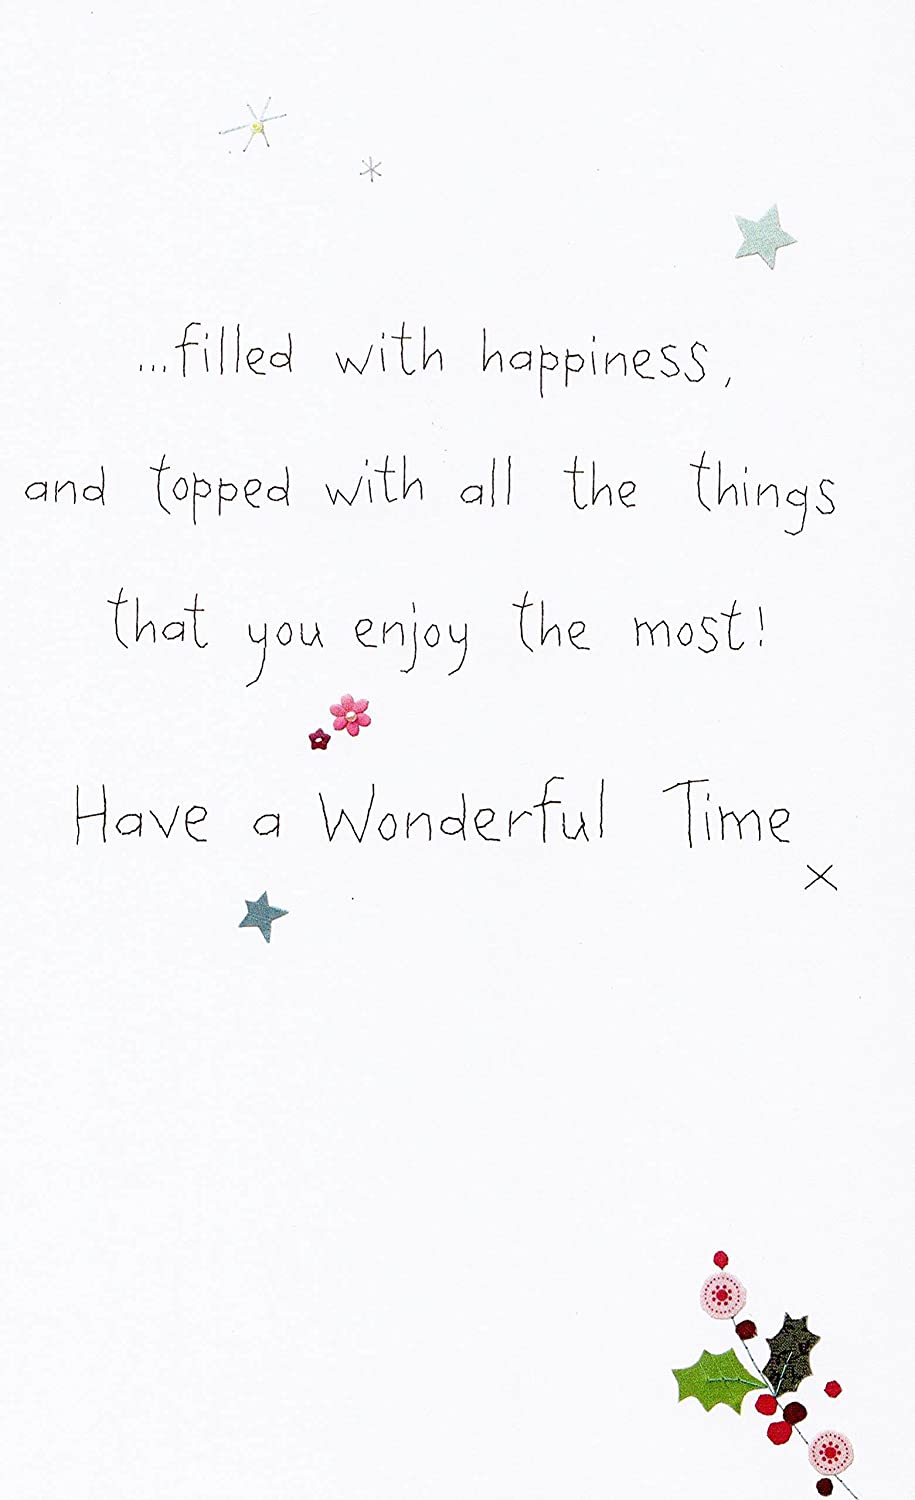 ...filled with happiness,
and topped with all the things
that you enjoy the most!
Have a Wonderful Time
x